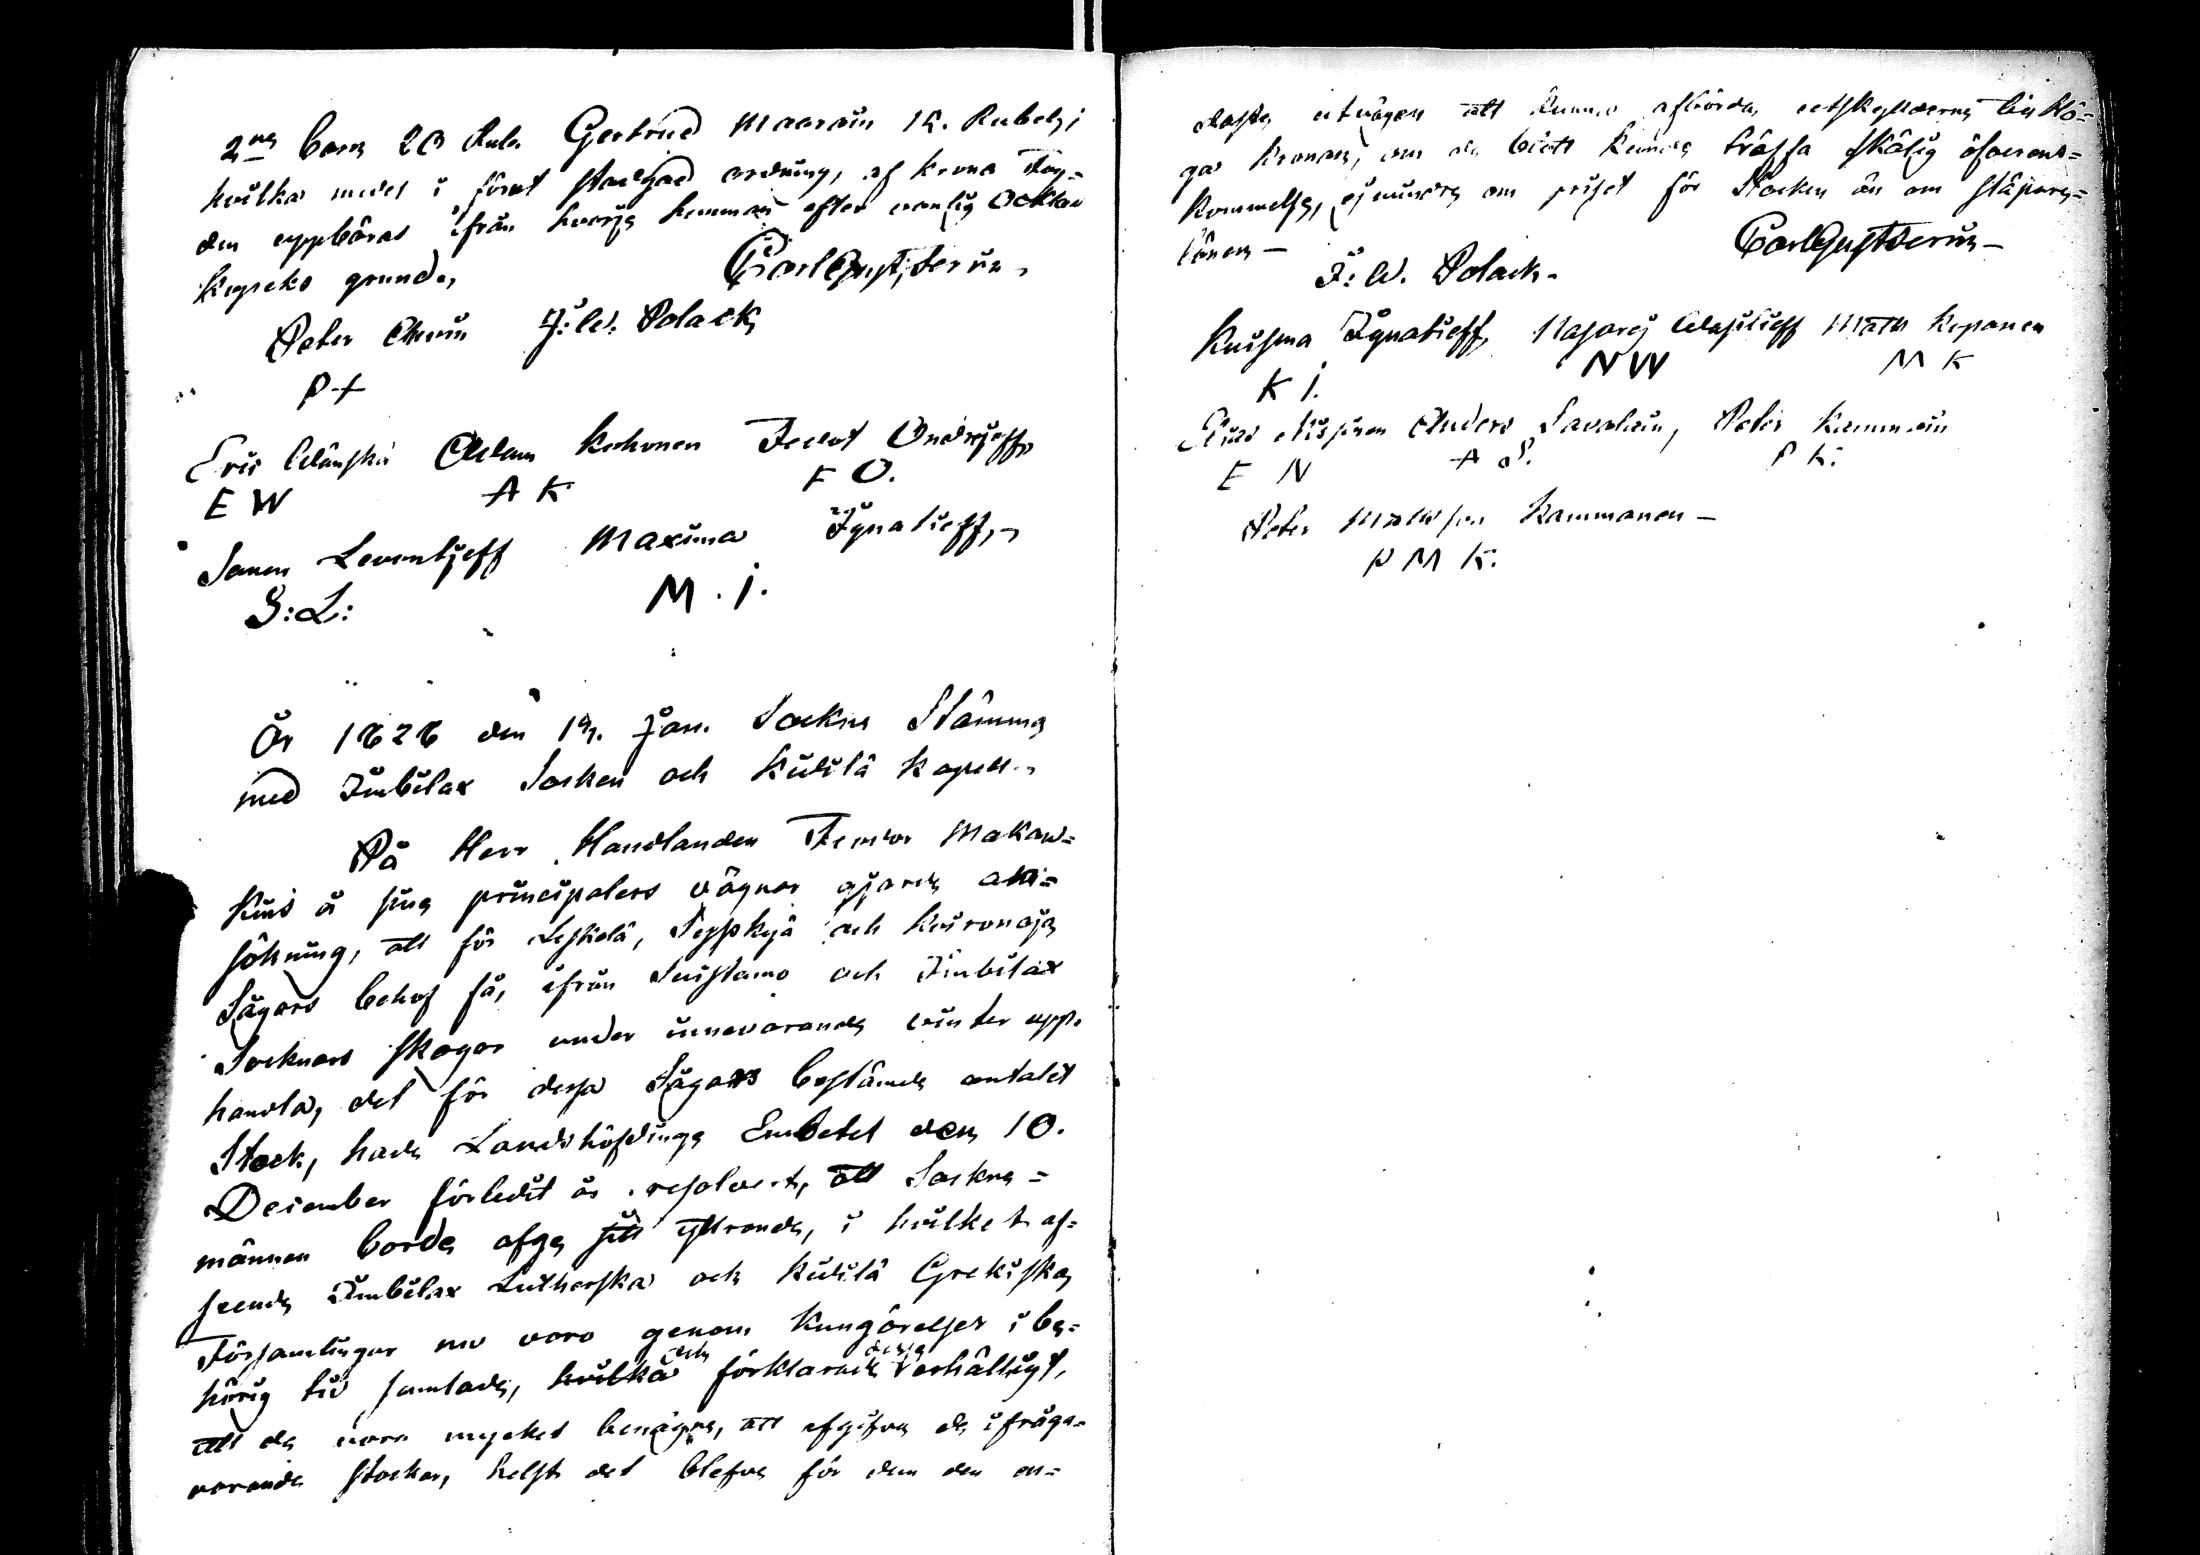 2ne barn 20 Rub. Gertrud Maarain 15. Rubel;
hvilka medel i förut stadgad ordning, af krono Fog-
den uppbäras ifrån hvarje hemman efter vanlig
Kopeks grund.
Carl Gust. Serun.
Peter J: W. Polack
P +
Eric Wänskä Adam Kokonen Fedot Ondrejeff,
E W A K F O.
Leventjeff Maxima Ignatieff,
S: L: M. i.
År 1828 den 19. Jan. Sockne Stämma
med Imbilax Socken och Kidilä Kapell.
På Herr Handlanden Feodor Makaw-
kins å sina principalers vägnar gjorda an-
sökning, att för Leskelä, Seppkyä och Kuronoja
Sågars behof få, ifrån Suistamo och Imbilax
Socknars Skogar under innevarande vinter upp-
handla, det för dessa Sågars bestämda antalet
Stock, hade Landshöfdinge Embetet den 10.
December förledit år resolverat, att Sockne-
männen borde afge sitt yttrande, i hvilket af-
seende Imbilax Lutherska och Kidilä Grekiska
Församlingar nu voro genom Kungörelser i be-
hörig tid samlade, hvilka och förklarade dessa Verhälligt,
att de voro mycket benägna, att afgifva de ifråga-
varande stockar, helst det blefve för dem den en-
dasta utvägen att kunna afbörda utskylderna till Hö-
ga Kronan, om de blott kunde träffa skälig öfverens-
kommelse, ej mindre om priset för Stocken än om släpare-
lönen –
J: W. Polack. Carl Gust Serun –
Kusma Ignatieff, Nasarej Wasilieff Matts Koponen
K i. N W M K
Nissinen Anders Savolain, Peter Kammoin
E N A S. P K.
Peter Matsson Kammonen –
P M K.